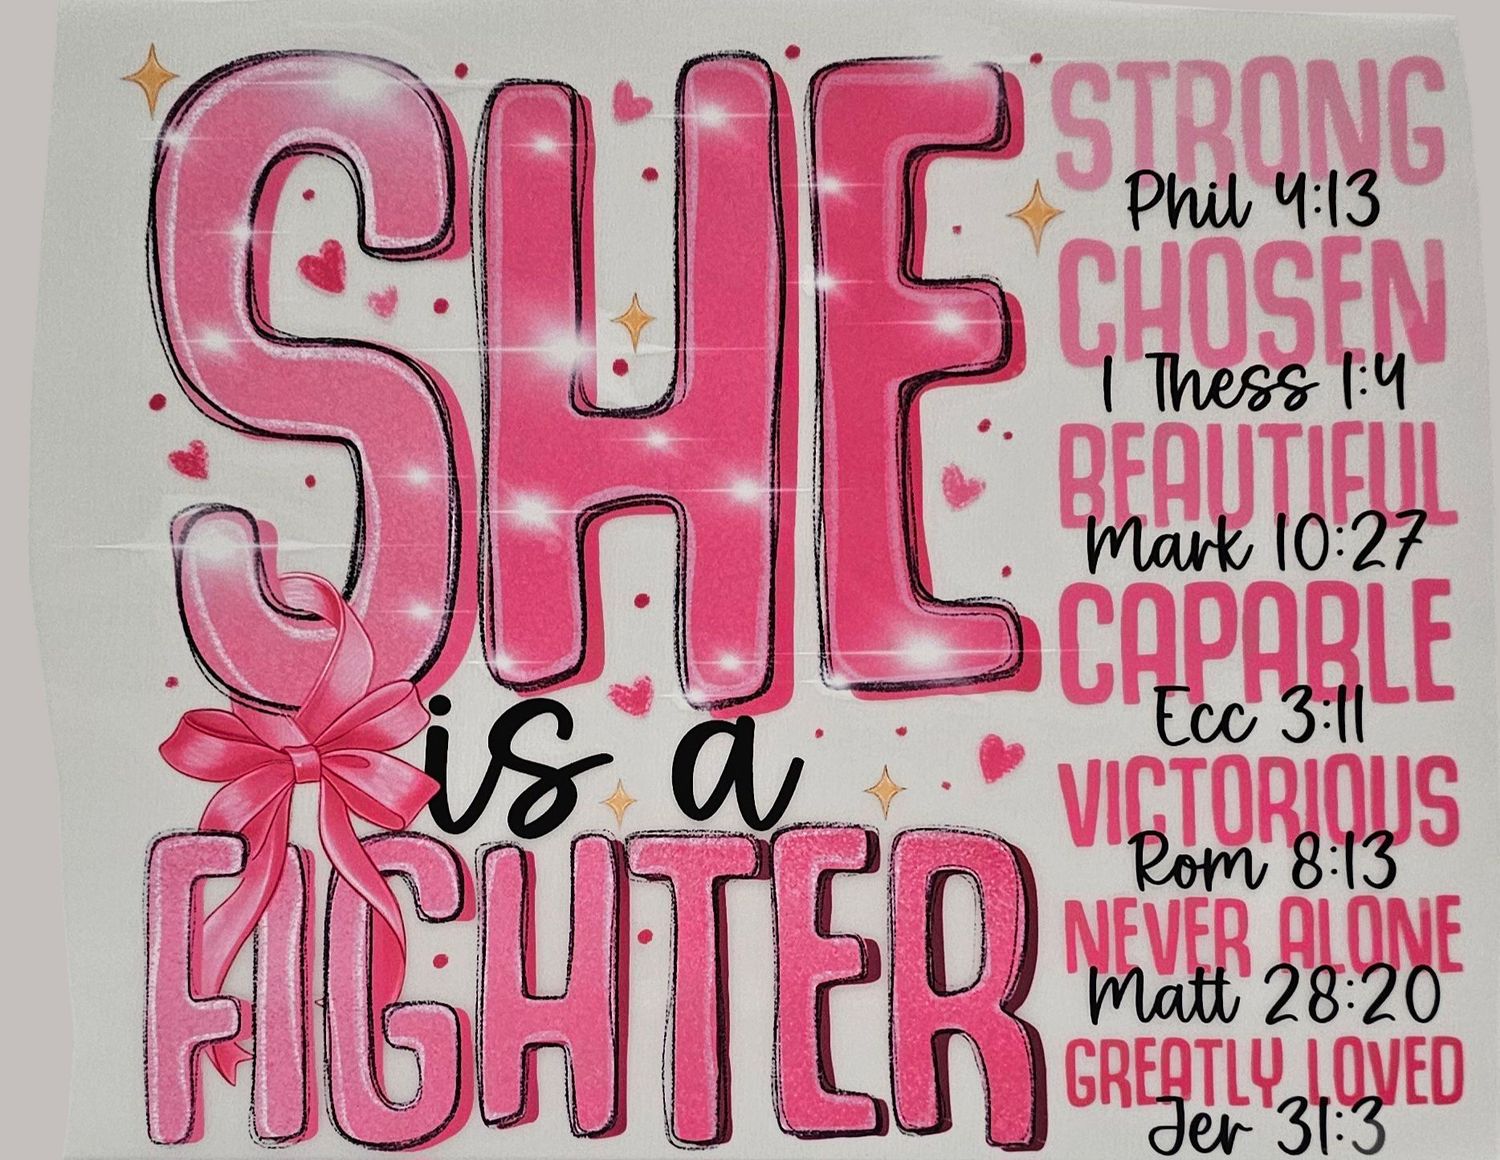 SHE
is a
FIGHTER
STRONG
Phil 4:13
CHOSEN
1 Thess 1:4
BEAUTIFUL
Mark 10:27
CAPABLE
Ecc 3:11
VICTORIOUS
Rom 8:13
NEVER ALONE
Matt 28:20
GREATLY LOVED
Jer 31:3